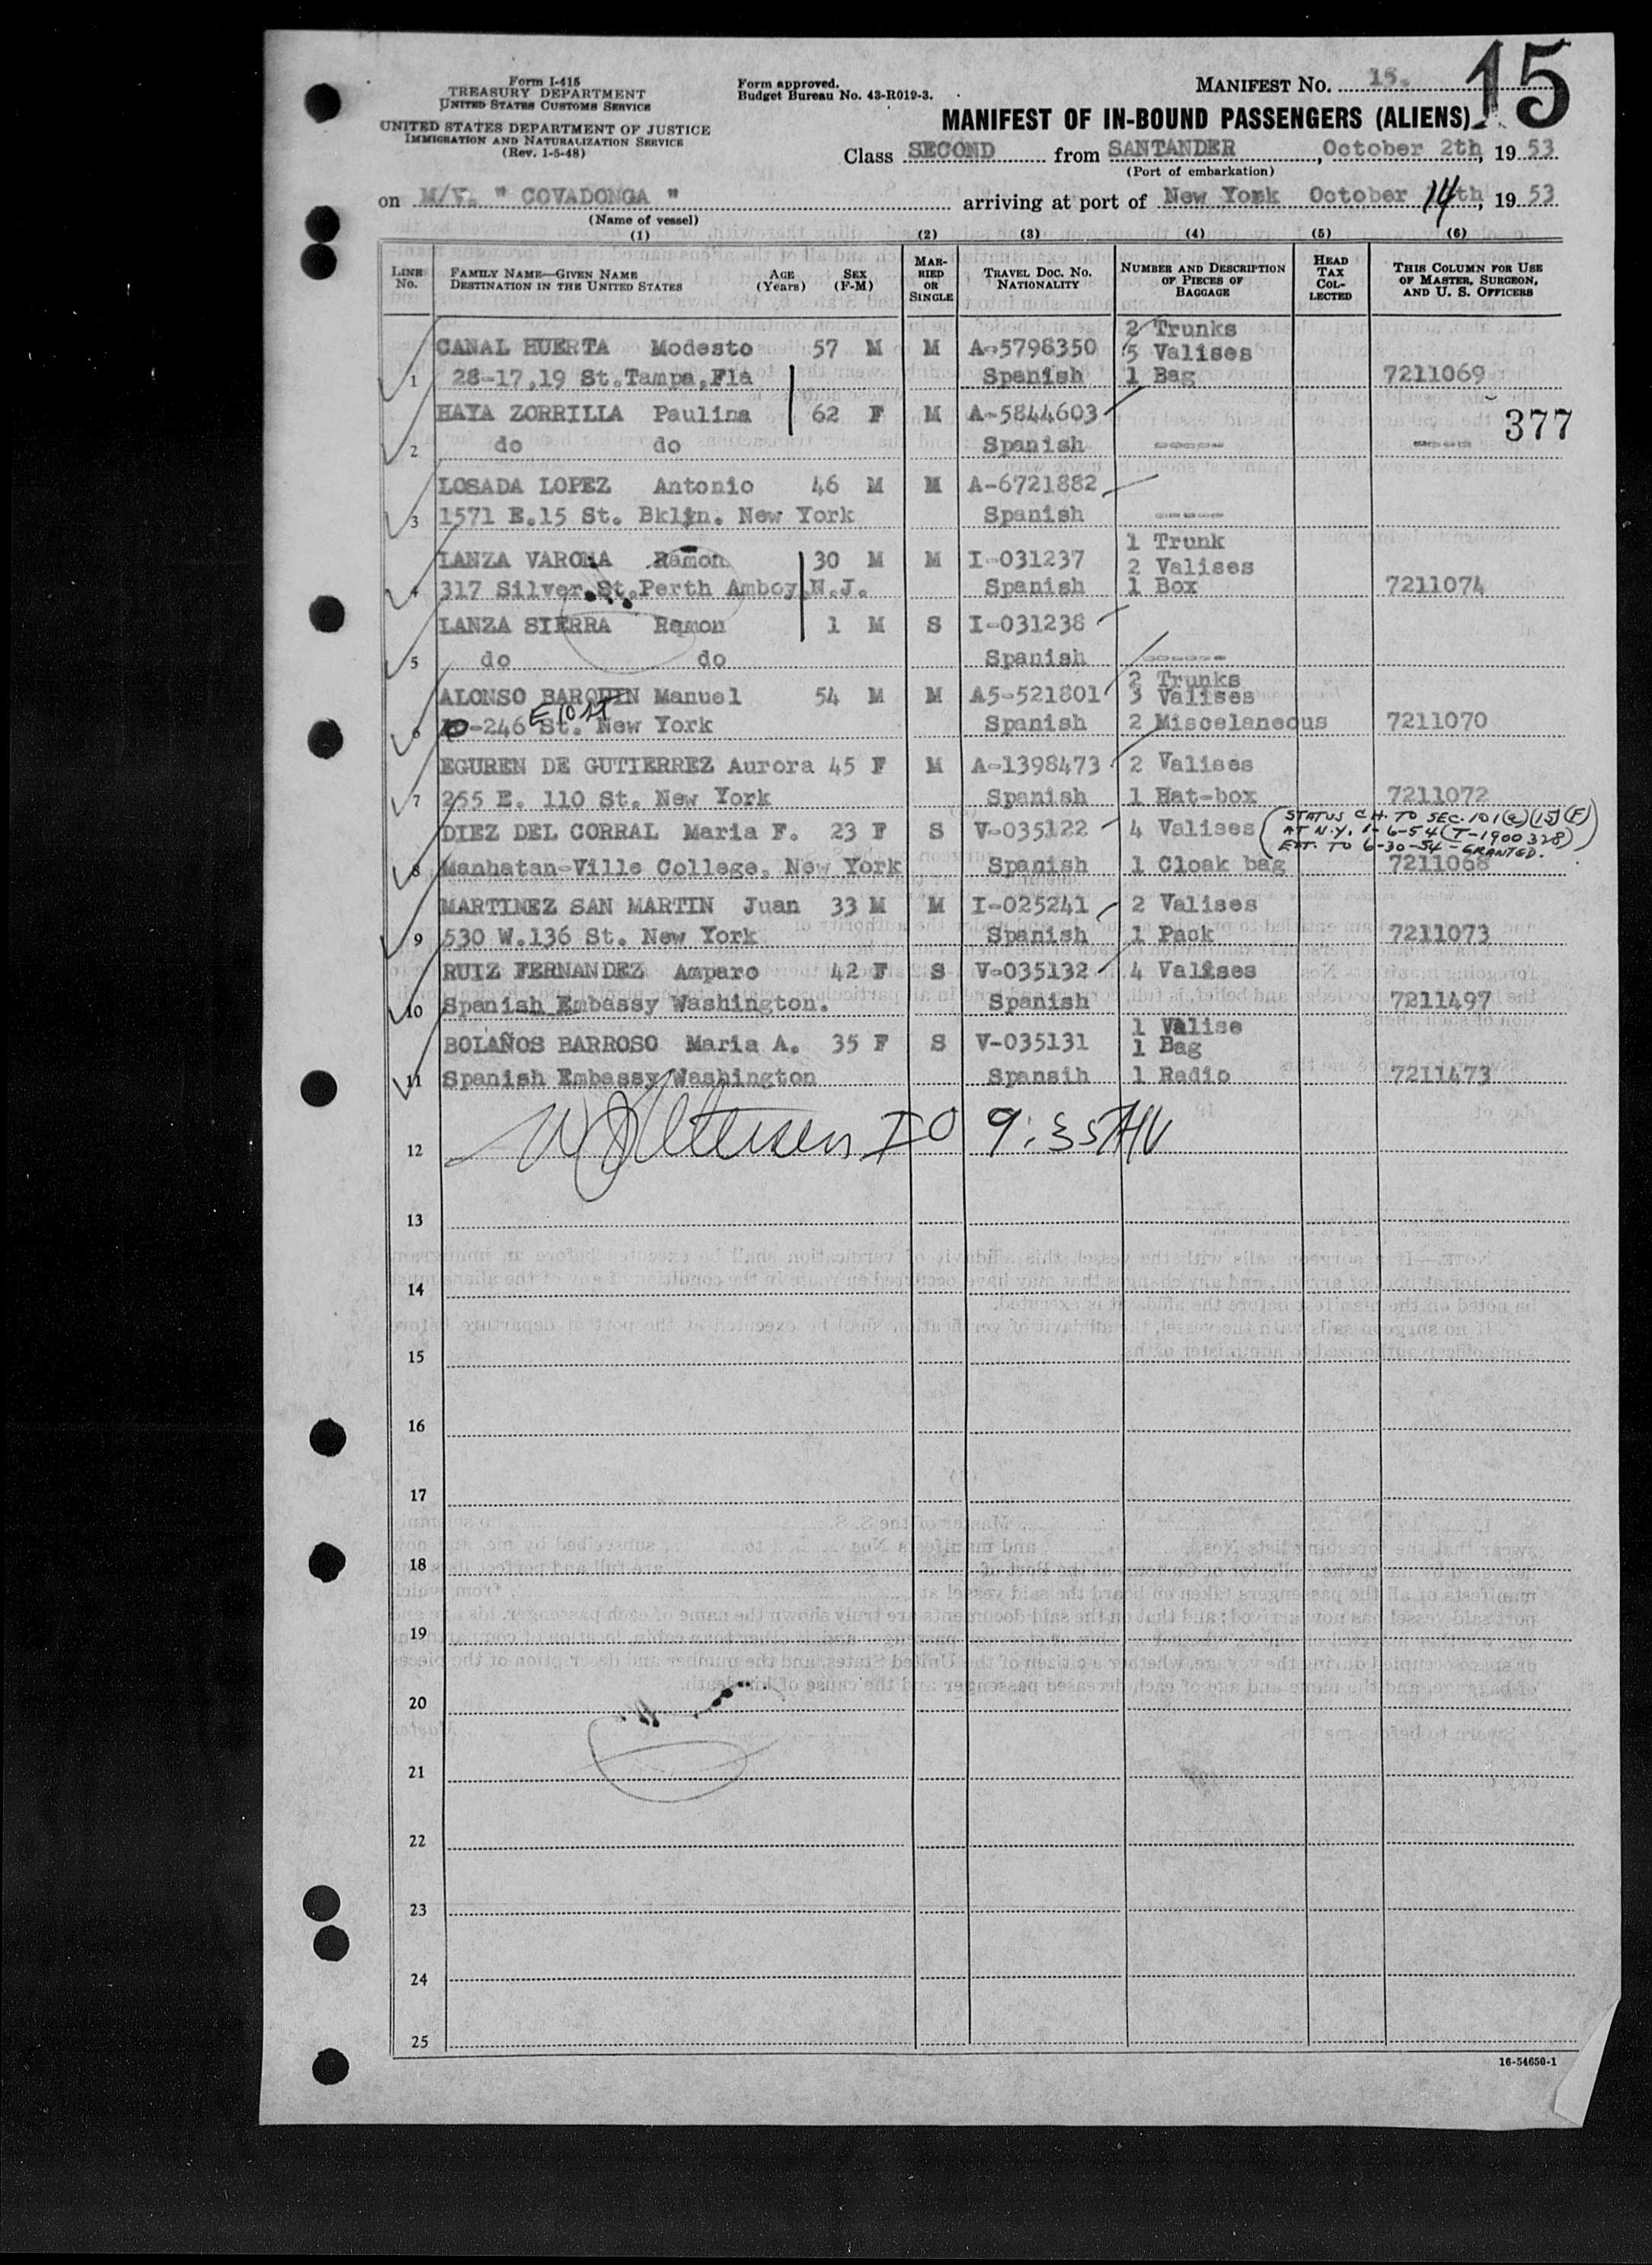 15
Form I-415
TREASURY DEPARTMENT
UNITED STATES CUSTOMS SERVICE
UNITED STATES DEPARTMENT OF JUSTICE
IMMIGRATION AND NATURALIZATION SERVICE
(Rev. 1-5-48)
Form approved.
Budget Bureau No. 43-R019-3.
MANIFEST No. 15.
MANIFEST OF IN-BOUND PASSENGERS (ALIENS)
Class SECOND from SANTANDER, October 2th, 19 53
(Port of embarkation)
on M/V. " COVADONGA " arriving at port of New York October 14th, 19 53
(Name of vessel)
(1) (2) (3) (4) (5) (6)
LINE No. FAMILY NAME—GIVEN NAME DESTINATION IN THE UNITED STATES AGE (Years) SEX (F-M) MARRIED OR SINGLE TRAVEL DOC. No. NATIONALITY NUMBER AND DESCRIPTION OF PIECES OF BAGGAGE HEAD TAX COLLECTED THIS COLUMN FOR USE OF MASTER, SURGEON, AND U. S. OFFICERS
2 Trunks
CANAL HUERTA Modesto 57 M M A-5798350 5 Valises
1 28-17,19 St.Tampa,Fla Spanish 1 Bag 7211069
HAYA ZORRILLA Paulina 62 F M A-5844603 377
2 do do Spanish ----- -----
LOSADA LOPEZ Antonio 46 M M A-6721882
3 1571 E.15 St. Bklyn. New York Spanish -----
1 Trunk
LANZA VARONA Ramon 30 M M I-031237 2 Valises
4 317 Silver St.Perth Amboy,N.J. Spanish 1 Box 7211074
LANZA SIERRA Ramon 1 M S I-031238
5 do do Spanish ------
2 Trunks
ALONSO BARQUIN Manuel 54 M M A5-521801 3 Valises
6 -246 E 10 St. New York Spanish 2 Miscelaneous 7211070
EGUREN DE GUTIERREZ Aurora 45 F M A-1398473 2 Valises
7 255 E. 110 St. New York Spanish 1 Hat-box 7211072
DIEZ DEL CORRAL Maria F. 23 F S V-035122 4 Valises
(STATUS CH. TO SEC. 101(a)(15)(F)
AT N.Y. 1-6-54 (T-1900328)
EXT. TO 6-30-54 - GRANTED.)
8 Manhatan-Ville College, New York Spanish 1 Cloak bag 7211068
MARTINEZ SAN MARTIN Juan 33 M M I-025241 2 Valises
9 530 W.136 St. New York Spanish 1 Pack 7211073
RUIZ FERNANDEZ Amparo 42 F S V-035132 4 Valises
10 Spanish Embassy Washington. Spanish 7211497
1 Valise
BOLAÑOS BARROSO Maria A. 35 F S V-035131 1 Bag
11 Spanish Embassy Washington Spansih 1 Radio 7211473
12 9:35 AM
13
14
15
16
17
18
19
20
21
22
23
24
25
16-54650-1